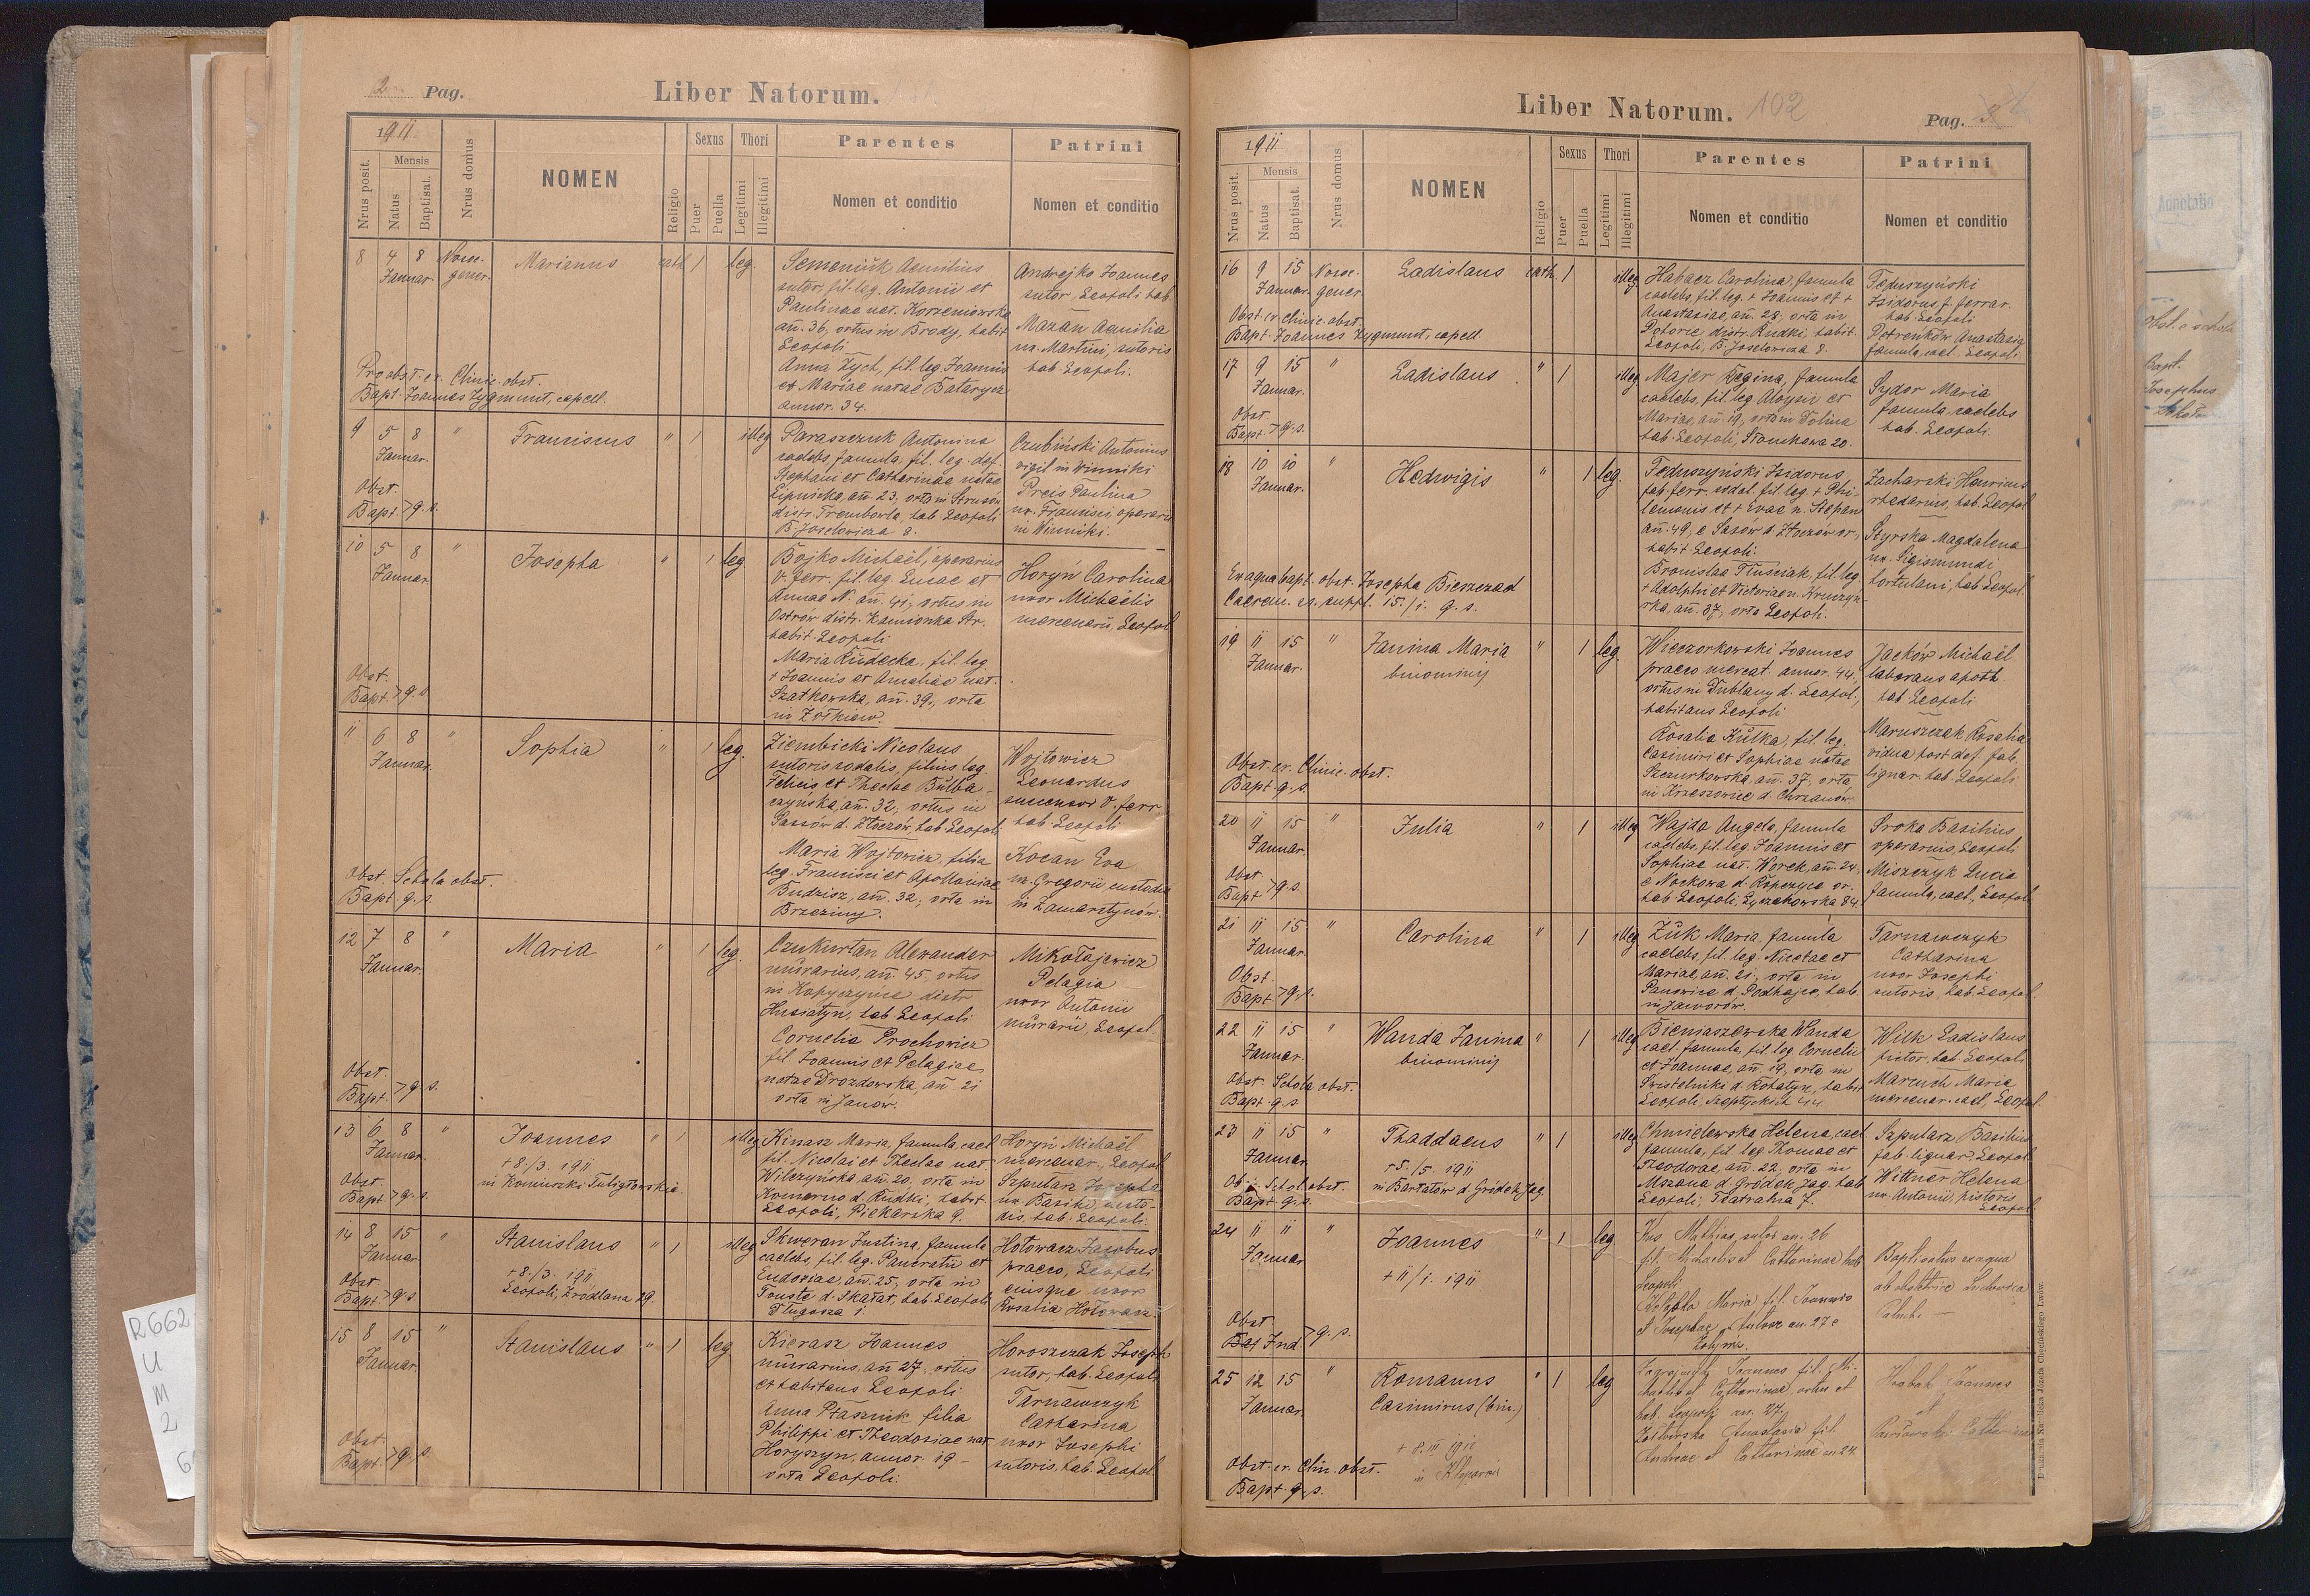 2 Pag.
Liber Natorum.
1911
Nrus posit.
Mensis
Natus
Baptisat.
Nrus domus
NOMEN
Religio
Sexus
Puer
Puella
Thori
Legitimi
Illegitimi
Parentes
Nomen et conditio
Patrini
Nomen et conditio
8 4 8 Noso-
Januar. gener.
Marianus cath. 1 leg.
Semeniuk Aemilius
sutor, fil. leg. Antonii et
Paulinae nat. Korzeniowska
añ. 36, ortus in Brody, habit
Leopoli
Anna Zych, fil. leg. Joannis
et Mariae natae Batarycz
annor. 34.
Andrejko Joannes
sutor, Leopoli hab.
Mazan Aemilia
ux. Martini, sutoris
hab. Leopoli.
Pro obst. ex. Clinic. obst.
Bapt. Joannes Zygmunt, capell.
9 5 8 "
Januar.
Franciscus " 1 illeg
Paraszczuk Antonina
caelebs famula, fil. leg. def.
Stephani et Catharinae natae
Lipuscka, añ. 23, orta in Strusów
distr. Trembowla, hab. Leopoli
B. Joselowicza 8.
Czubiński Antonius
vigil in Winniki
Preis Paulina
ux. Francisci operarii
in Winniki.
Obst.
Bapt. > q. s.
10 5 8 "
Januar.
Josepha " 1 leg
Bojko Michaël, operarius
v. ferr. fil. leg. Lucae et
Annae N. añ. 41, ortus in
Ostrów distr. Kamionka Str.
habit. Leopoli
Maria Rudecka, fil. leg.
+ Joannis et Amaliae nat.
Szatkowska, añ. 39, orta
in Żółkiew.
Horyń Carolina
uxor Michaëlis
mercenarii, Leopol
Obst.
Bapt. > q. s.
11 6 8 "
Januar.
Sophia " 1 leg.
Ziembicki Nicolaus
sutoris sodalis, filius leg.
Felicis et Theclae Bulba-
czyńska, añ. 32, ortus in
Sassów d. Złoczów, hab Leopoli
Maria Wojtowicz, filia
leg. Francisci et Apolloniae
Budzisz, añ. 32, orta in
Brzeziny.
Wojtowicz
Leonardus
succensor v. ferr.
hab Leopoli
Kocan Eva
ux. Gregorii custodis
in Zamarstynów.
Obst. Schola obst.
Bapt. q. s.
12 7 8 "
Januar.
Maria " 1 leg.
Czukurtan Alexander
murarius, añ. 45, ortus
in Kopyczyńce distr
Husiatyn, hab Leopoli
Cornelia Prochowicz
fil. Joannis et Pelagiae
natae Drozdowska, añ 21
orta in Janów.
Mikołajewicz
Pelagia
uxor Antonii
murarii, Leopol.
Obst.
Bapt. > q. s.
13 6 8 "
Januar.
Joannes " 1 illeg
+ 8./3. 1911
in Koniuszki Tuligłowskie.
Kinasz Maria, famula, cael
fil. Nicolai et Theclae nat
Wilczyńska, añ. 20, orta in
Komarno d. Rudki, habit.
Leopoli, Piekarska 9.
Horyń Michaël
mercenar., Leopol
Szpularz Josepha
ux. Basilii, custo-
dis, hab. Leopoli.
Obst.
Bapt. > q. s.
14 8 15 "
Januar
Stanislaus " 1 illeg
+ 8./3. 1911
Leopoli, Źródlana 29.
Skweran Justina, famula
caelebs, fil. leg. Pancratii et
Eudoxiae, añ. 25, orta in
Touste d. Skałat, hab Leopoli
Długosza 1.
Hołowacz Jacobus
praeco, Leopoli
eiusque uxor
Rosalia Hołowacz
Obst
Bapt. > q. s
15 8 15 "
Januar
Stanislaus " 1 leg
Kierasz Joannes
murarius, añ 27, ortus
et habitans Leopoli
Anna Ptasznik filia
Philippi et Theodosiae nat
Horyszyn, annor. 19 -
orta Leopoli.
Horoszczak Joseph
sutor, hab. Leopoli
Tarnawczyk
Catharina
uxor Josephi
sutoris, hab. Leopol.
Obst.
Bapt. > q. s.
Liber Natorum. 102
Pag. 3
1911
Nrus posit.
Mensis
Natus
Baptisat.
Nrus domus
NOMEN
Religio
Sexus
Puer
Puella
Thori
Legitimi
Illegitimi
Parentes
Nomen et conditio
Patrini
Nomen et conditio
16 9 15 Nosoc.
Januar. gener.
Ladislaus cath. 1 illeg
Habacz Carolina, famula
caelebs, fil. leg. + Joannis et +
Anastasiae, añ. 28, orta in
Pohorce distr. Rudki, habit.
Leopoli, B. Joselowicza 8.
Feduszyński
Isidorus f. ferrar.
hab. Leopoli
Petreńków Anastasia
famula, cael. Leopoli.
Obst. ex. Clinic. obst.
Bapt. Joannes Zygmunt, capell.
17 9 15 "
Januar.
Ladislaus " 1 illeg
Majer Regina, famula
caelebs, fil. leg. Aloysii et
Mariae, añ. 19, orta in Dolina
hab. Leopoli, Słonikowa 20.
Sydor Maria
famula, caelebs
hab. Leopoli.
Obst.
Bapt. > q. s.
18 10 10 "
Januar.
Hedwigis " 1 leg.
Feduszyński Isidorus,
fab. ferr. sodal. fil. leg. + Phi-
lemonis et + Evae n. Stepan
añ. 49, e Sasów d. Złoczów or.,
habit Leopoli.
Bronislaa Tłuściak, fil. leg.
+ Adolphi et Victoriae n. Kruczyń-
rka, añ. 37, orta Leopoli.
Zacharski Henricus
rhedarius, hab. Leopol
Styrska Magdalena
ux. Sigismundi
hortulani, hab Leopol.
Ex aqua bapt. obst. Josepha Bieszczad
Caerem. ss. suppl. 15./1. q. s.
19 11 15 "
Januar.
Janina Maria " 1 leg.
binominis
Wieczorkowski Joannes
praeco mercat. annor. 44,
ortus in Dublany d. Leopol,
habitans Leopoli
Rosalia Kulka, fil. leg.
Casimiri et Sophiae natae
Szczurkowska, añ. 37, orta
in Krzeszowice d. Chrzanów.
Jacków Michaël
laborans apoth.
hab Leopoli
Maruszczak Rosalia
vidua post def. fab.
lignar. hab. Leopoli.
Obst. ex. Clinic. obst.
Bapt q. s.
20 11 15 "
Januar.
Julia " 1 illeg
Wajda Angela, famula
caelebs, fil. leg. Joannis et
Sophiae nat. Worek, añ. 24,
e Nockowa d. Ropczyce or.
hab. Leopoli, Łyczakowska 84.
Sroka Basilius
operarius, Leopoli
Miszczyk Lucia
famula, cael., Leopol
Obst
Bapt > q. s.
21 11 15 "
Januar.
Carolina " 1 illeg
Żuk Maria, famula
caelebs, fil. leg. Nicetae et
Mariae, añ. 21, orta in
Panowice d. Podhajce, hab.
in Jaworów.
Tarnawczyk
Catharina
uxor Josephi
sutoris, hab. Leopol.
Obst
Bapt > q. s.
22 11 15 "
Januar.
Wanda Janina " 1 illeg
binominis
Bieniaszewska Wanda
cael. famula, fil. leg Cornelii
et Joannae, añ 19, orta in
Świstelniki d. Rohatyn, habit
Leopoli, Szeptyckich 44.
Wilk Ladislaus
pictor, hab. Leopoli
Marcush Maria
mercenar. cael, Leopol.
Obst. Schola obst.
Bapt. q. s.
23 11 15 "
Januar
Thaddaeus " 1 illeg
+ 5./5. 1911
in Bartatów d. Gródek Jag.
Chmielewska Helena, cael.
famula, fil. leg. Thomae et
Theodorae, añ. 22, orta in
Mszana d. Gródek Jag. hab.
Leopoli, Teatralna 7.
Szpularz Basilius
fab. lignar. Leopol.
Wittner Helena
ux. Antonii, pistoris
Leopol.
Obst. Schol. obst.
Bapt. q. s.
24 11 11 "
Januar
Joannes " 1 leg
+ 11/1. 1911
Kus Mathias, sutor an. 26
fil. Michaelis et Catharinae hab
Leopoli
Maria fil. Joannis
et Josephae an. 27 e
Baptisatus ex aqua
ab obstetrice Ludovica
Obst
Bapt Ind. > q. s.
25 12 15 "
Januar.
Romanus " 1 leg
Casimirus (bin.)
+ 8. III 1912
in Kleparów
Joannes fil. Mi-
chaelis et Catharinae, ortus et
hab. Leopoli an. 27,
Anastasia fil.
Andreae et Catharinae an 24.
Hrabak Joannes
et
Obst. ex. Clin. obst.
Bapt. q. s.
Drukarnia Katolicka Józefa Chęcińskiego Lwów.
Adnotatio
Obst. e schola
Bapt.
Josephus
R662
U
M
2